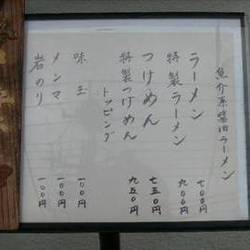 魚介系醤油ラーメン
ラーメン 七〇〇円
特製ラーメン 九〇〇円
つけめん 七五〇円
特製つけめん 九五〇円
トッピング
味玉 一〇〇円
メンマ 一〇〇円
岩のり 一〇〇円